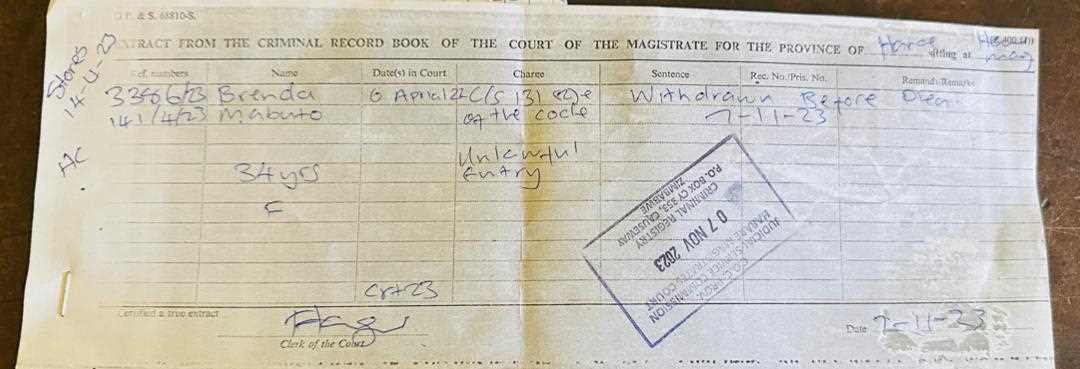 G.P. & S. 68810-S.
EXTRACT FROM THE CRIMINAL RECORD BOOK OF THE COURT OF THE MAGISTRATE FOR THE PROVINCE OF Harare sitting at
Stores
14-U-23
HC
Ref. numbers Name Date(s) in Court Charge Sentence Rec. No./Pris. No. Remands/Remarks
3386/6/23 Brenda 6 April 22 C/S 131 of the code Withdrawn Before Plea
141/4/23 Mabuto 7-11-23
34 yrs Unlawful Entry
F
Crt 23
JUDICIAL SERVICE COMMISSION
HARARE MAGISTRATES COURT
07 NOV 2023
CRIMINAL REGISTRY
P.O. BOX CY 353, CAUSEWAY
ZIMBABWE
Certified a true extract
Clerk of the Court
Date 7-11-23